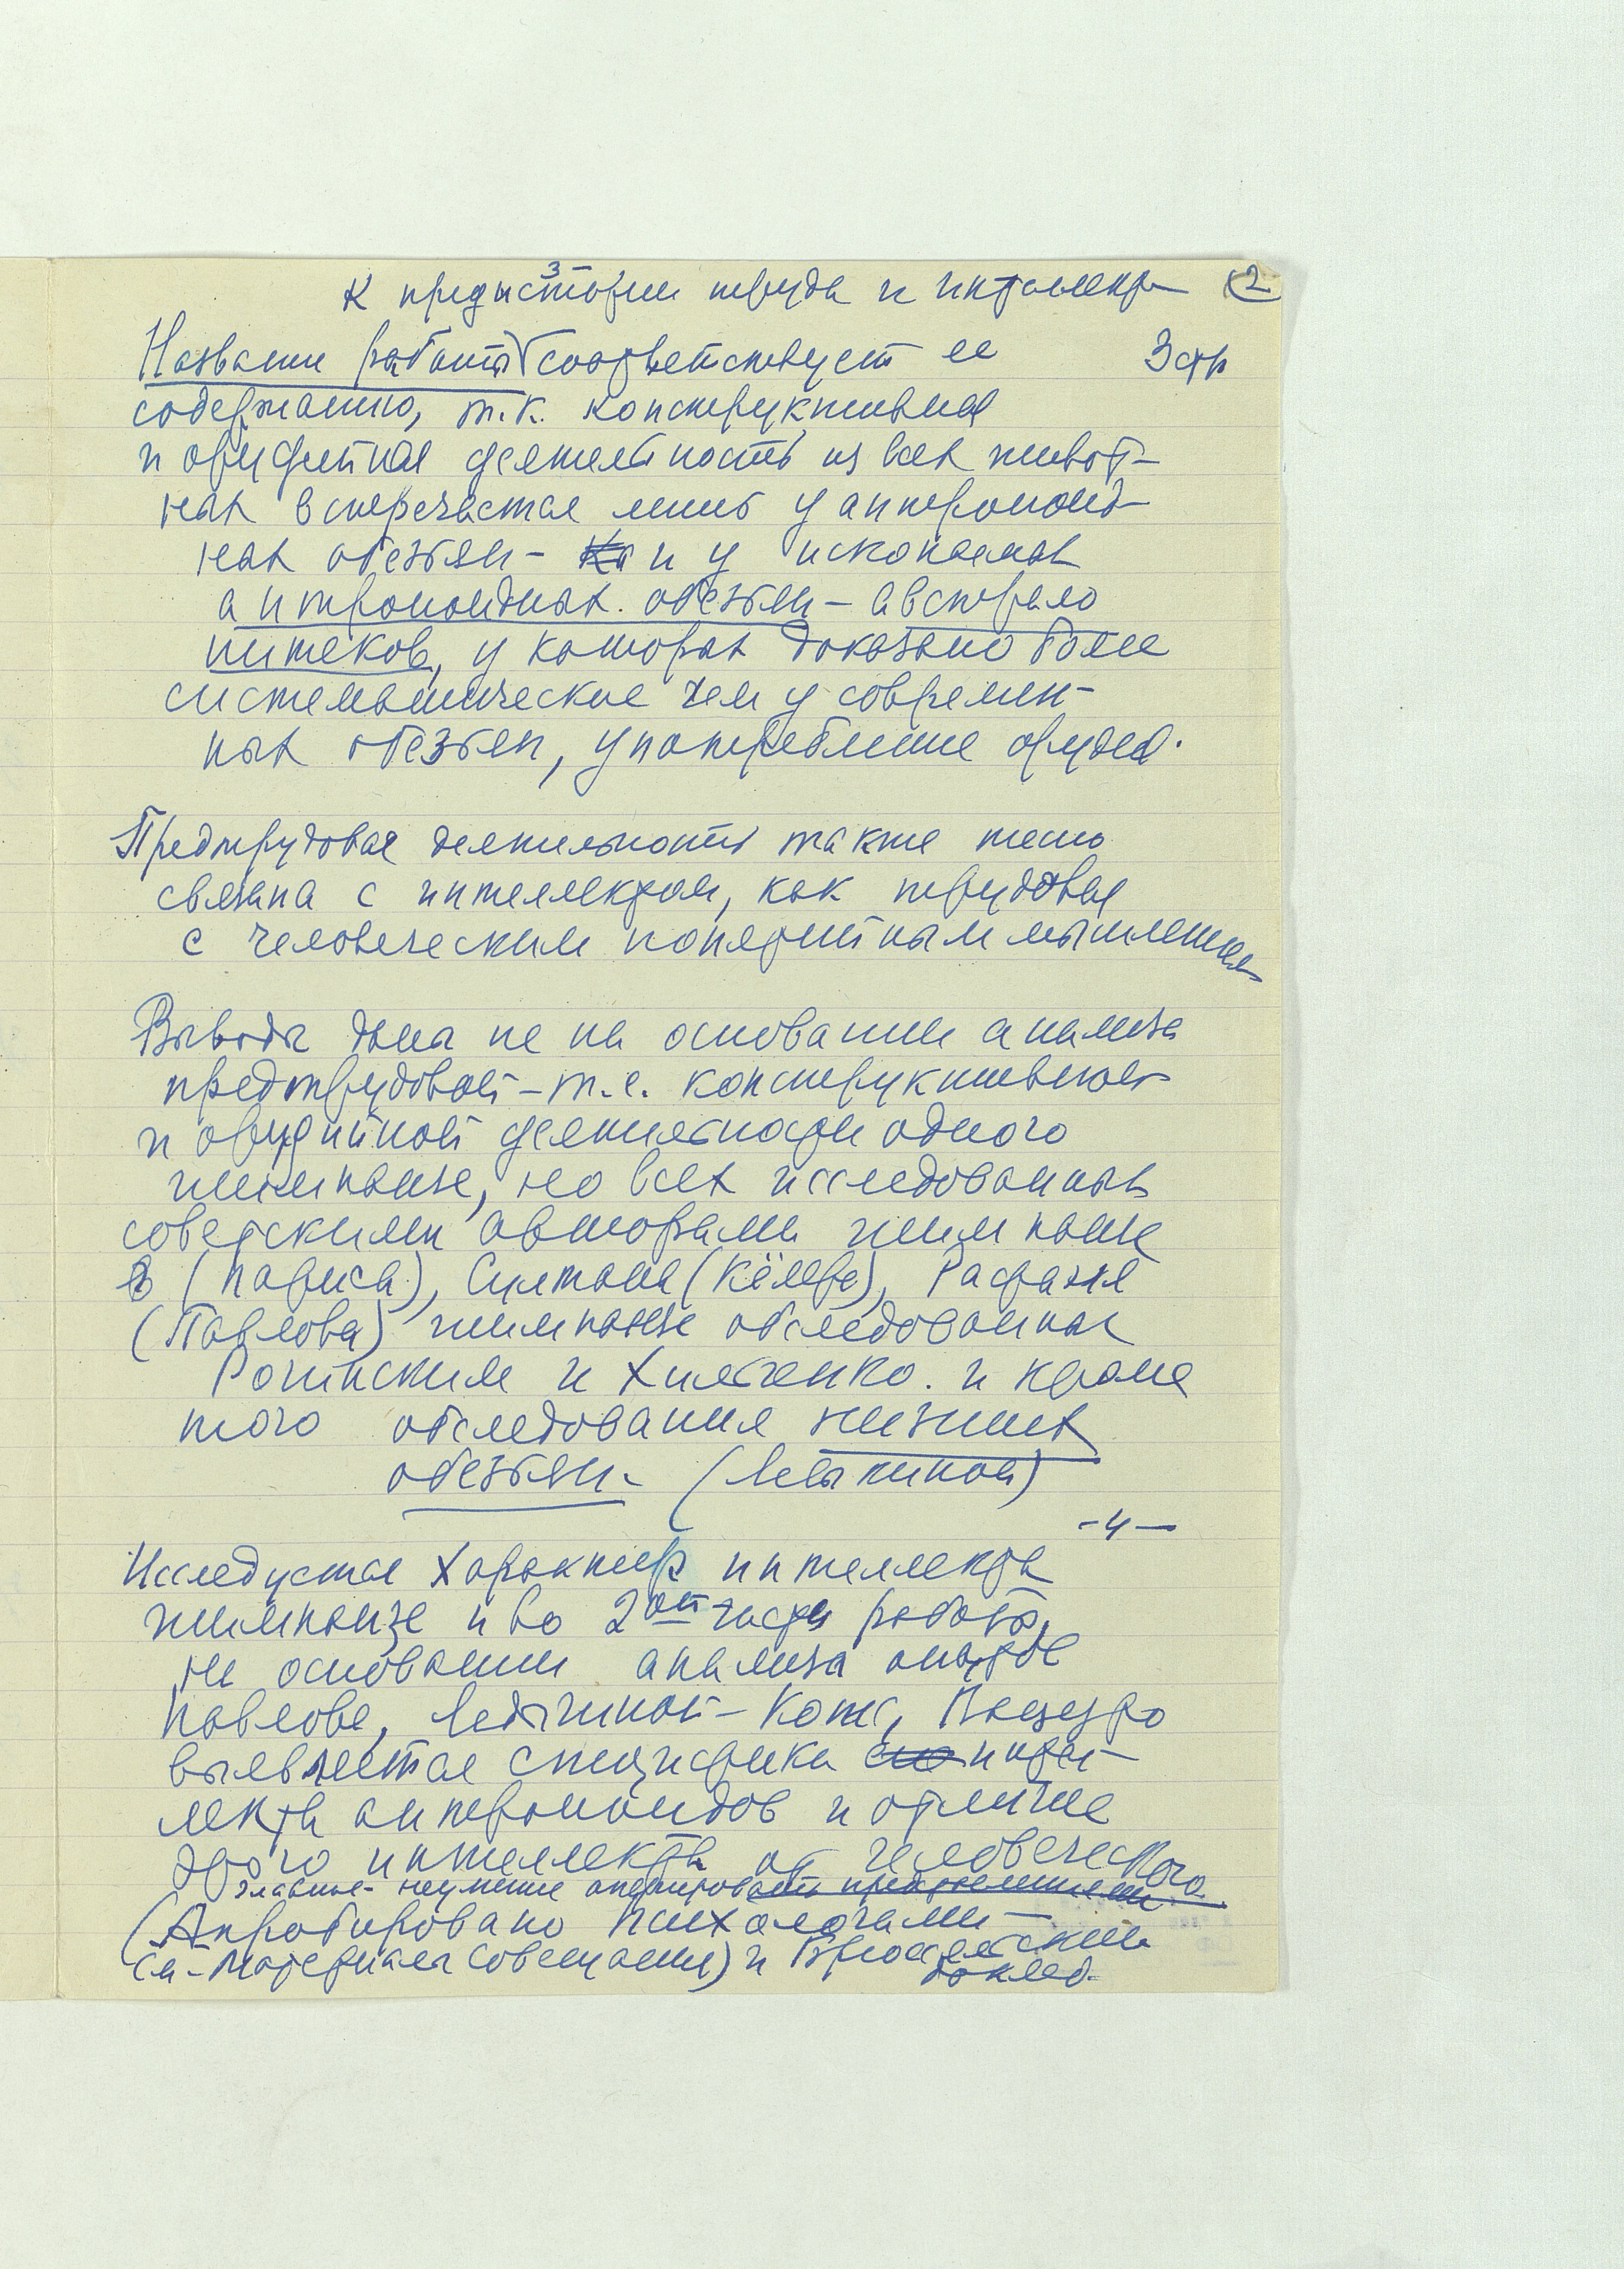 3
К предыстории труда и интеллекта (2
Название работы соответствует ее 3 стр
содержанию, т.к. конструктивная
и орудийная деятельность из всех живот-
ных встречается лишь у антропоид-
ных обезьян - и у ископаемых
антропоидных обезьян - австрало
питеков, у которых доказано более
систематическое чем у современ-
ных обезьян, употребление орудий.
Предтрудовая деятельность также тесно
связана с интеллектом, как трудовая
с человеческим понятийным мышлением
Выводы даны не на основании анализа
предтрудовой - т.е. конструктивной
и орудийной деятельности одного
шимпанзе, но всех исследованных
советскими авторами шимпанзе
(Париса), Султана (Кёлера), Рафаэля
(Павлова) шимпанзе обследованных
Рогинским и Хильченко. и кроме
того обследования низших
обезьян. (Ладыгиной)
- 4 -
Исследуется характер интеллекта
шимпанзе и во 2ой части работы,
на основании анализа опытов
Павлова, Ладыгиной - Котс, Вацуро
выявляется специфика интел-
лекта антропоидов и отличие
этого интеллекта от человеческого
главное - неумение оперировать представлениями
(Апробировано психологами -
см. Материалы совещания) и Брюссельский
доклад.